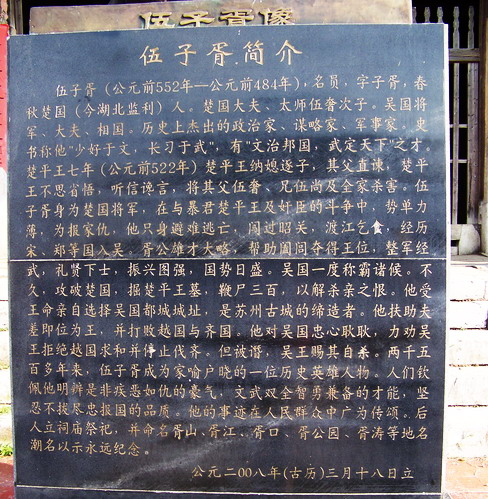 伍子胥像
伍子胥简介
伍子胥（公元前552年—公元前484年），名员，字子胥，春
秋楚国（今湖北监利）人。楚国大夫、太师伍奢次子。吴国将
军、大夫、相国。历史上杰出的政治家、谋略家、军事家。史
书称他“少好于文，长习于武”，有“文治邦国，武定天下”之才。
楚平王七年（公元前522年）楚平王纳媳逐子，其父直谏，楚平
王不思省悟、听信谗言，将其父伍奢、兄伍尚及全家杀害。伍
子胥身为楚国将军，在与暴君楚平王及奸臣的斗争中，势单力
薄，为报家仇，他只身避难逃亡、闯过昭关，渡江乞食，经历
宋、郑等国入吴。胥公雄才大略，帮助阖闾夺得王位，整军经
武，礼贤下士，振兴图强，国势日盛。吴国一度称霸诸侯。不
久，攻破楚国，掘楚平王墓，鞭尸三百，以解杀亲之恨。他受
王命亲自选择吴国都城城址，是苏州古城的缔造者。他扶助夫
差即位为王，并打败越国与齐国。他对吴国忠心耿耿，力劝吴
王拒绝越国求和并停止伐齐。但被潜，吴王赐其自杀。两千五
百多年来，伍子胥成为家喻户晓的一位历史英雄人物。人们钦
佩他明辨是非疾恶如仇的豪气，文武双全智勇兼备的才能，坚
忍不拔尽忠报国的品质。他的事迹在人民群众中广为传颂。后
人立祠庙祭祀，并命名胥山、胥江、胥口、胥公园、胥涛等地名
潮名以示永远纪念。
公元二00八年(古历)三月十八日立